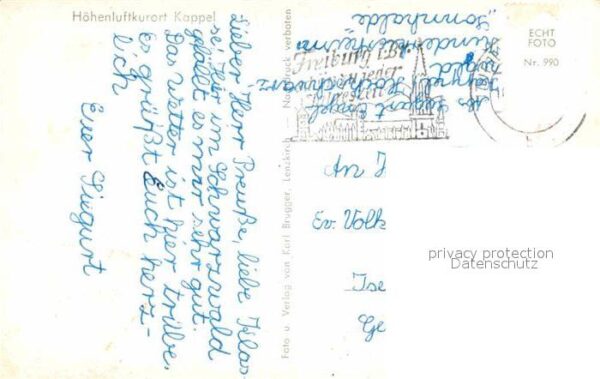 Höhenluftkurort Kappel
Lieber Herr Preuße, liebe Klas
se! Hier im Schwarzwald
gefällt es mir sehr gut.
Das Wetter ist hier trübe.
Es grüßt Euch herz-
lich
Euer Siegurt
Foto u. Verlag von Karl Brugger, Lenzkirch — Nachdruck verboten
Kappel Hochschwarz
wald
Kinderkurheim
„Sonnhalde
ECHT
FOTO
Nr. 990
An
Ev. Volk
Ise
Ge
privacy protection
Datenschutz